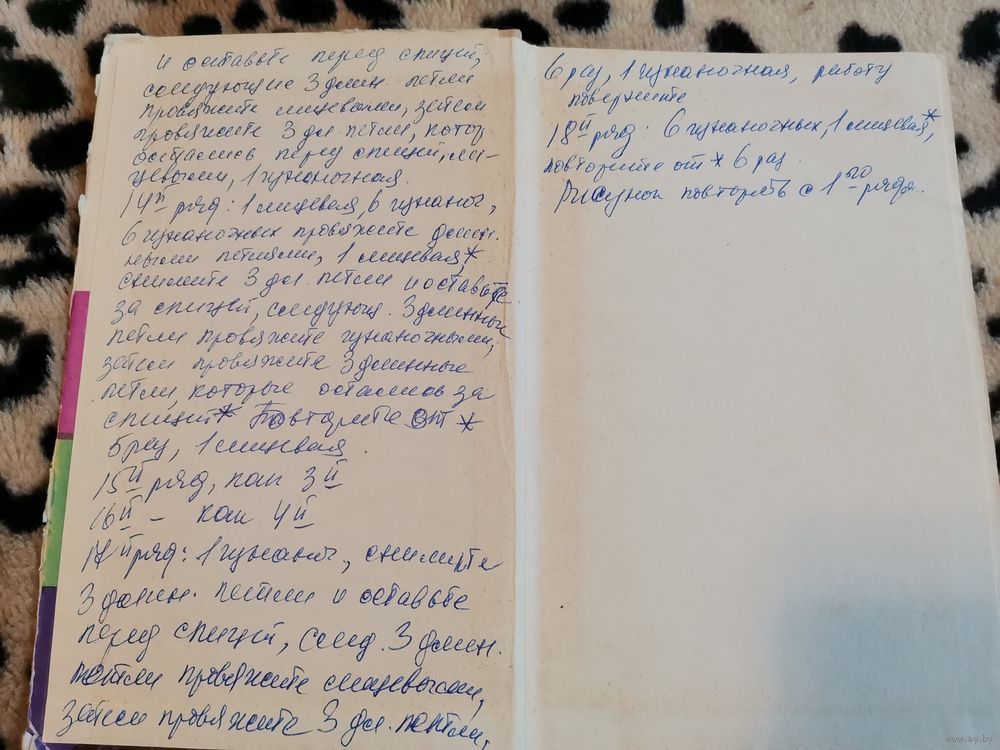 и оставьте перед спицей,
следующие 3 длин. петли
провяжите лицевыми, затем
провяжите 3 дл. петли, котор.
остались перед спицей, ли-
цевыми, 1 изнаночная.
14й ряд: 1 лицевая, 6 изнаноч,
6 изнаночных провяжите длин-
ными петлями, 1 лицевая, *
снимите 3 дл. петли и оставьте
за спицей, следующ. 3 длинные
петли провяжите изнаночными,
затем провяжите 3 длинные
петли, которые остались за
спицей * Повторите от *
5 раз, 1 лицевая.
15й ряд, как 3й
16й – как 4й
17й ряд: 1 изнаноч, снимите
3 длин. петли и оставьте
перед спицей, след. 3 длин.
петли провяжите лицевыми,
затем провяжите 3 дл. петли,
6 раз, 1 изнаночная, работу
поверните
18й ряд: 6 изнаночных, 1 лицевая, *
повторите от * 6 раз.
Рисунок повторять с 1го ряда.
www.ay.by